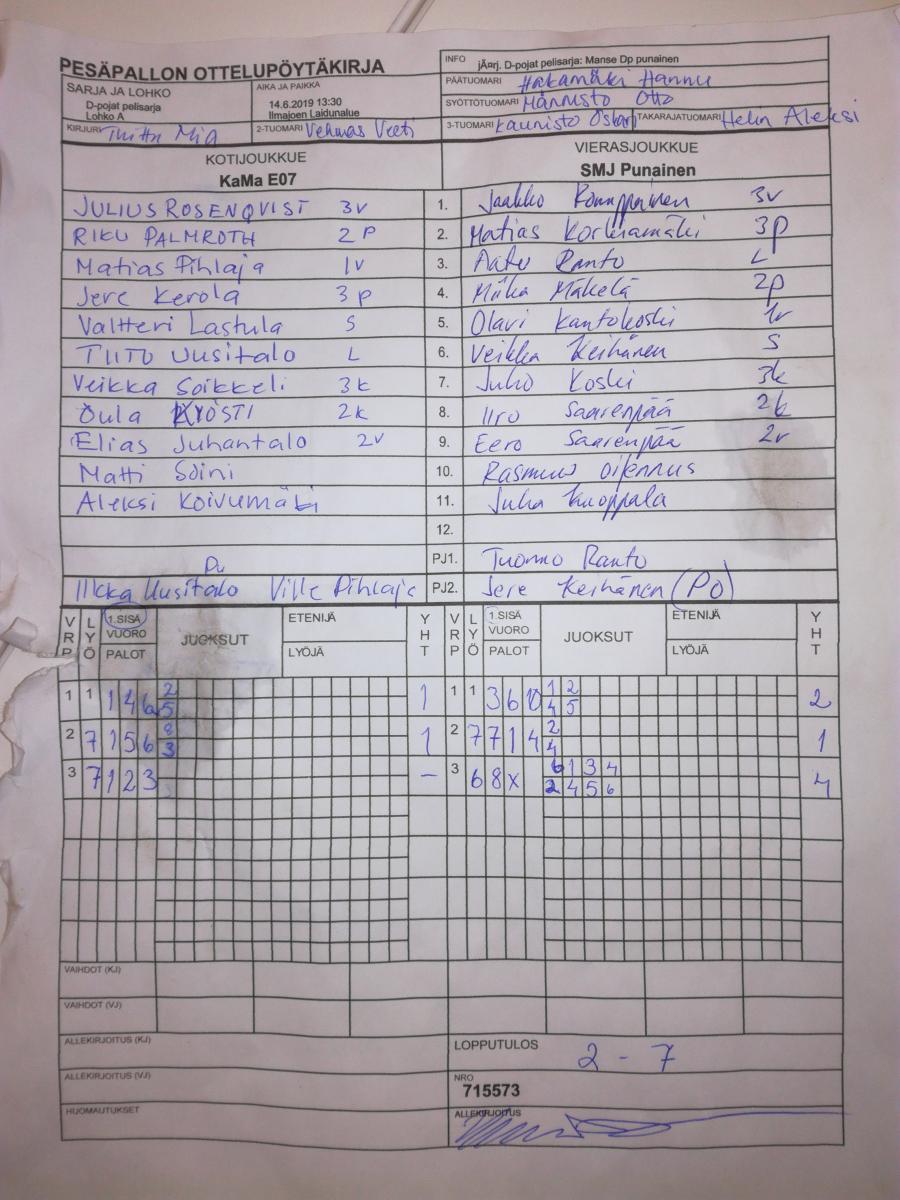 PESÄPALLON OTTELUPÖYTÄKIRJA
INFO jÃ¤rj. D-pojat pelisarja: Manse Dp punainen
PÄÄTUOMARI Hakamäki Hannu
SARJA JA LOHKO
D-pojat pelisarja
Lohko A
AIKA JA PAIKKA
14.6.2019 13:30
Ilmajoen Laidunalue
SYÖTTÖTUOMARI Männistö Otto
KIRJURI Mia
2-TUOMARI Vehmas Veeti
3-TUOMARI Kaunisto Oskari
TAKARAJATUOMARI Helin Aleksi
KOTIJOUKKUE
KaMa E07
VIERASJOUKKUE
SMJ Punainen
JULIUS ROSENQVIST 3v 1. Jaakko 3v
RIKU PALMROTH 2P 2. Matias Korkiamäki 3p
Matias Pihlaja 1v 3. Aatu Ranto L
Jere Kerola 3p 4. Miika Mäkelä 2p
Valtteri Lastula S 5. Olavi Kantokoski 1v
TIITO UUSITALO L 6. Veikka Keihänen S
Veikka Soikkeli 3k 7. Juho Koski 3k
Oula KYÖSTI 2k 8. Iiro Saarenpää 2k
Elias Juhantalo 2v 9. Eero Saarenpää 2v
Matti Soini 10. Rasmus Oikennus
Aleksi Koivumäki 11. Juha Kuoppala
12.
PJ1. Tuomo Ranto
Pu
Ilkka Uusitalo Ville Pihlaja PJ2. Jere Keihänen (PO)
VRP LYÖ 1.SISÄ VUORO PALOT JUOKSUT ETENIJÄ LYÖJÄ YHT VRP LYÖ 1.SISÄ VUORO PALOT JUOKSUT ETENIJÄ LYÖJÄ YHT
1 1 1 4 6 2 1 1 1 3 6 10 1 2 2
5 4 5
2 7 1 5 6 8 1 2 7 7 1 4 2 1
3 4
3 7 1 2 3 – 3 6 8 x 6 1 3 4 4
2 4 5 6
VAIHDOT (KJ)
VAIHDOT (VJ)
ALLEKIRJOITUS (KJ)
LOPPUTULOS 2 - 7
ALLEKIRJOITUS (VJ)
NRO
715573
HUOMAUTUKSET
ALLEKIRJOITUS